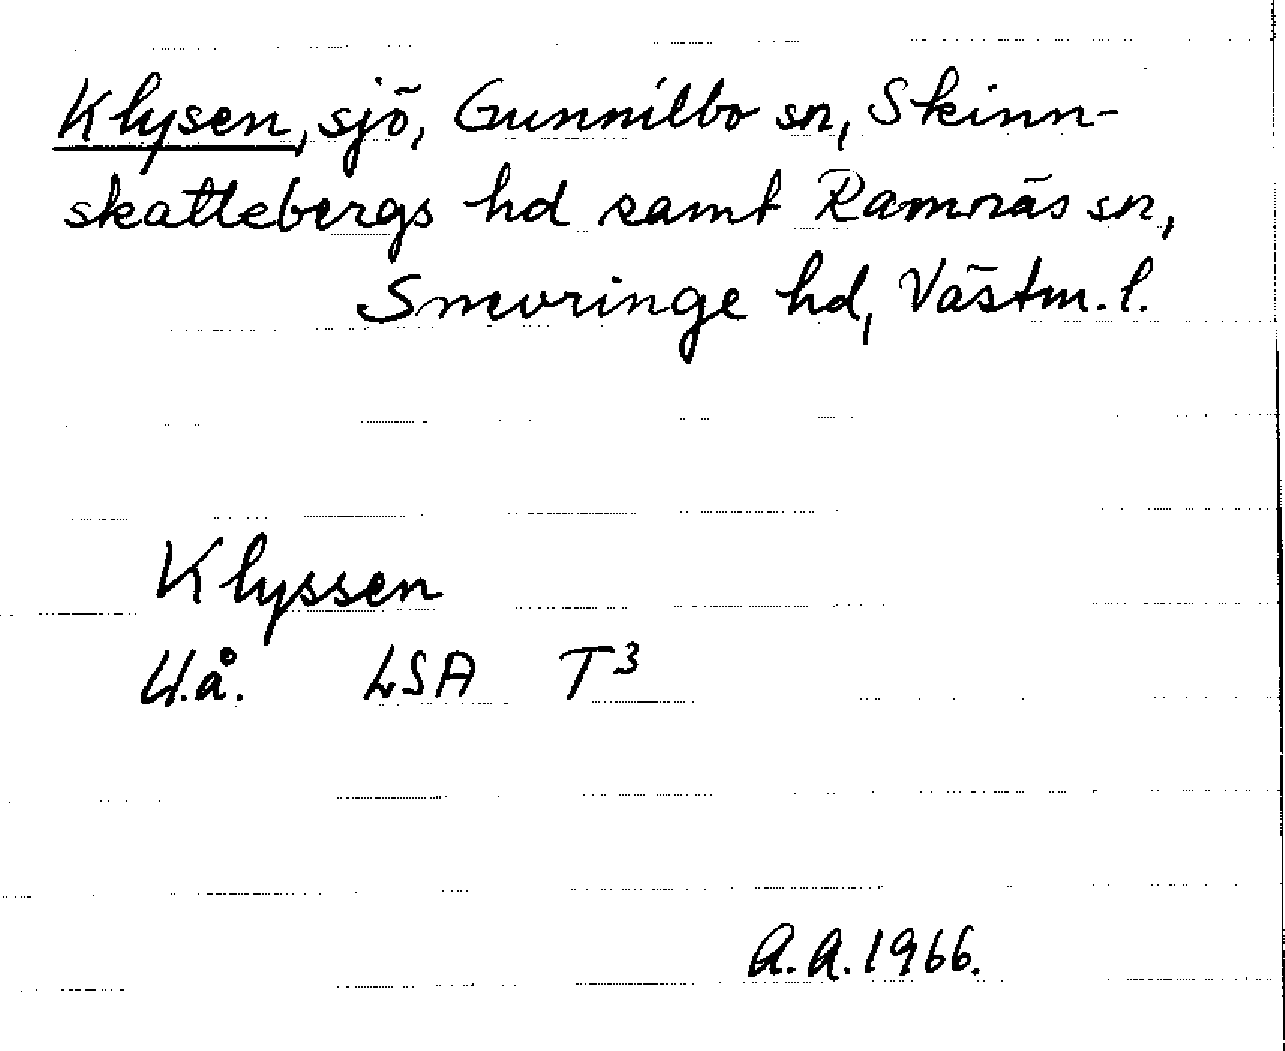 Klysen, sjö, Gunnilbo sn, Skinn-
skattebergs hd samt Ramnäs sn,
Snevringe hd, Västm. l.
Klyssen
U.å. LSA T3
A.A. 1966.